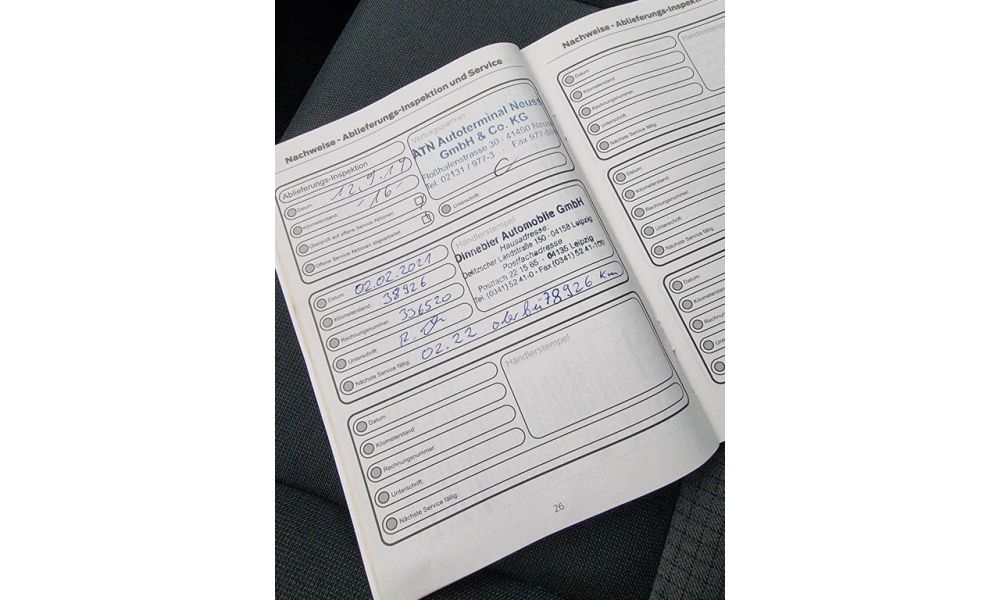 Nachweise - Ablieferungs-Inspektion und Service
Ablieferungs-Inspektion
Datum: 12.9.19
Kilometerstand: -16-
Überprüft auf offene Service Aktionen
Offene Service Aktionen abgearbeitet
Vertragspartner
ATN Autoterminal Neuss
GmbH & Co. KG
Floßhafenstrasse 30 · 41460 Neuss
Tel. 02131 / 977-3 · Fax 977-
Unterschrift:
Datum: 02.02.2021
Kilometerstand: 38926
Rechnungsnummer: 336520
Unterschrift:
Nächste Service fällig: 02.22 oder bei 78926 km
Händlerstempel
Dinnebier Automobile GmbH
Hausadresse:
Delitzscher Landstraße 150 · 04158 Leipzig
Postfachadresse
Postfach 22 15 65 · 04135 Leipzig
Tel. (0341) 52 41-0 · Fax (0341) 52 41-100
Datum:
Kilometerstand:
Rechnungsnummer:
Unterschrift:
Nächste Service fällig:
Händlerstempel
26
Nachweise - Ablieferungs-Inspekt
Datum:
Kilometerstand:
Rechnungsnummer:
Unterschrift:
Nächste Service fällig:
Händlerstem
Datum:
Kilometerstand:
Rechnungsnummer:
Unterschrift:
Nächste Service fällig:
Datum:
Kilometerstand:
Rechnungsnummer:
Unterschrift: